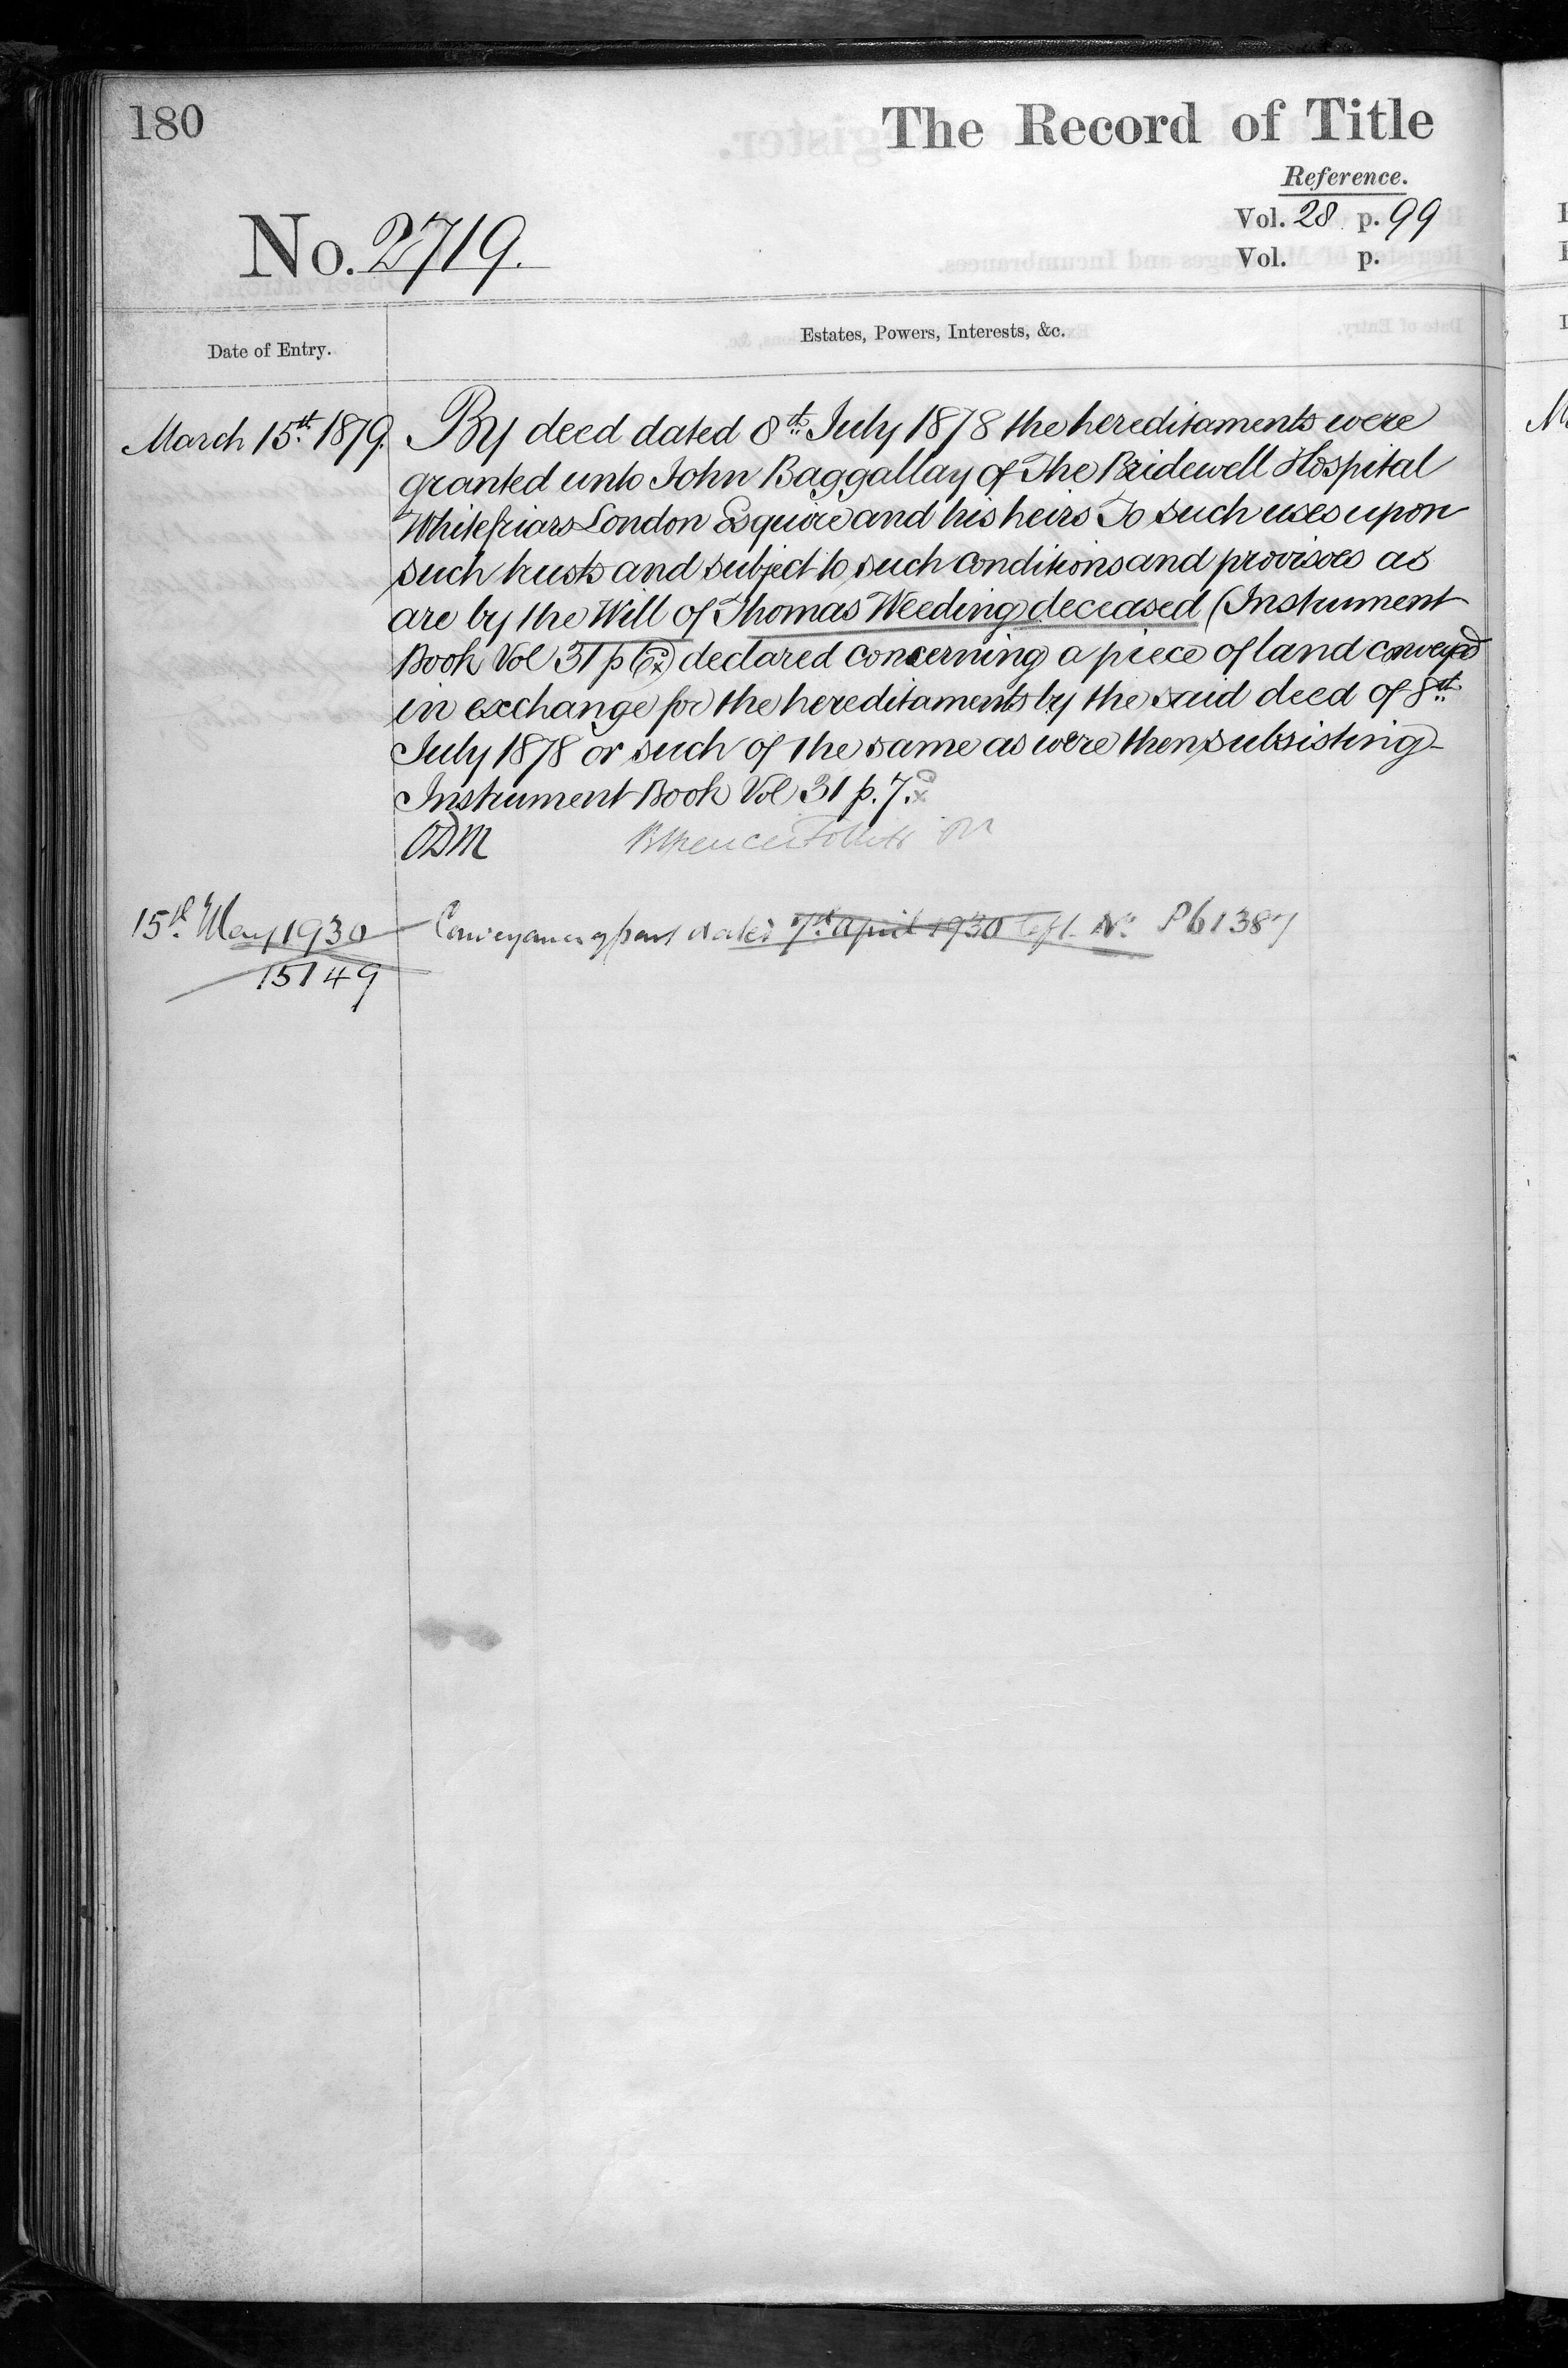 180
The Record of Title
Reference.
Vol. 28 p. 99
Vol. p.
No. 2719.
Date of Entry.
Estates, Powers, Interests, &c.
March 15th 1879. By deed dated 8th July 1878 the hereditaments were
granted unto John Baggallay of The Bridewell Hospital
Whitefriars London Esquire and his heirs To such uses upon
such trusts and subject to such conditions and provisoes as
are by the Will of Thomas Weeding deceased (Instrument
Book Vol 31 p 6) declared concerning a piece of land conveyed
in exchange for the hereditaments by the said deed of 8th
July 1878 or such of the same as were then subsisting
Instrument Book Vol 31 p. 7.
15th May 1930 Conveyance of part dated 7th April 1930 No P61387
15149